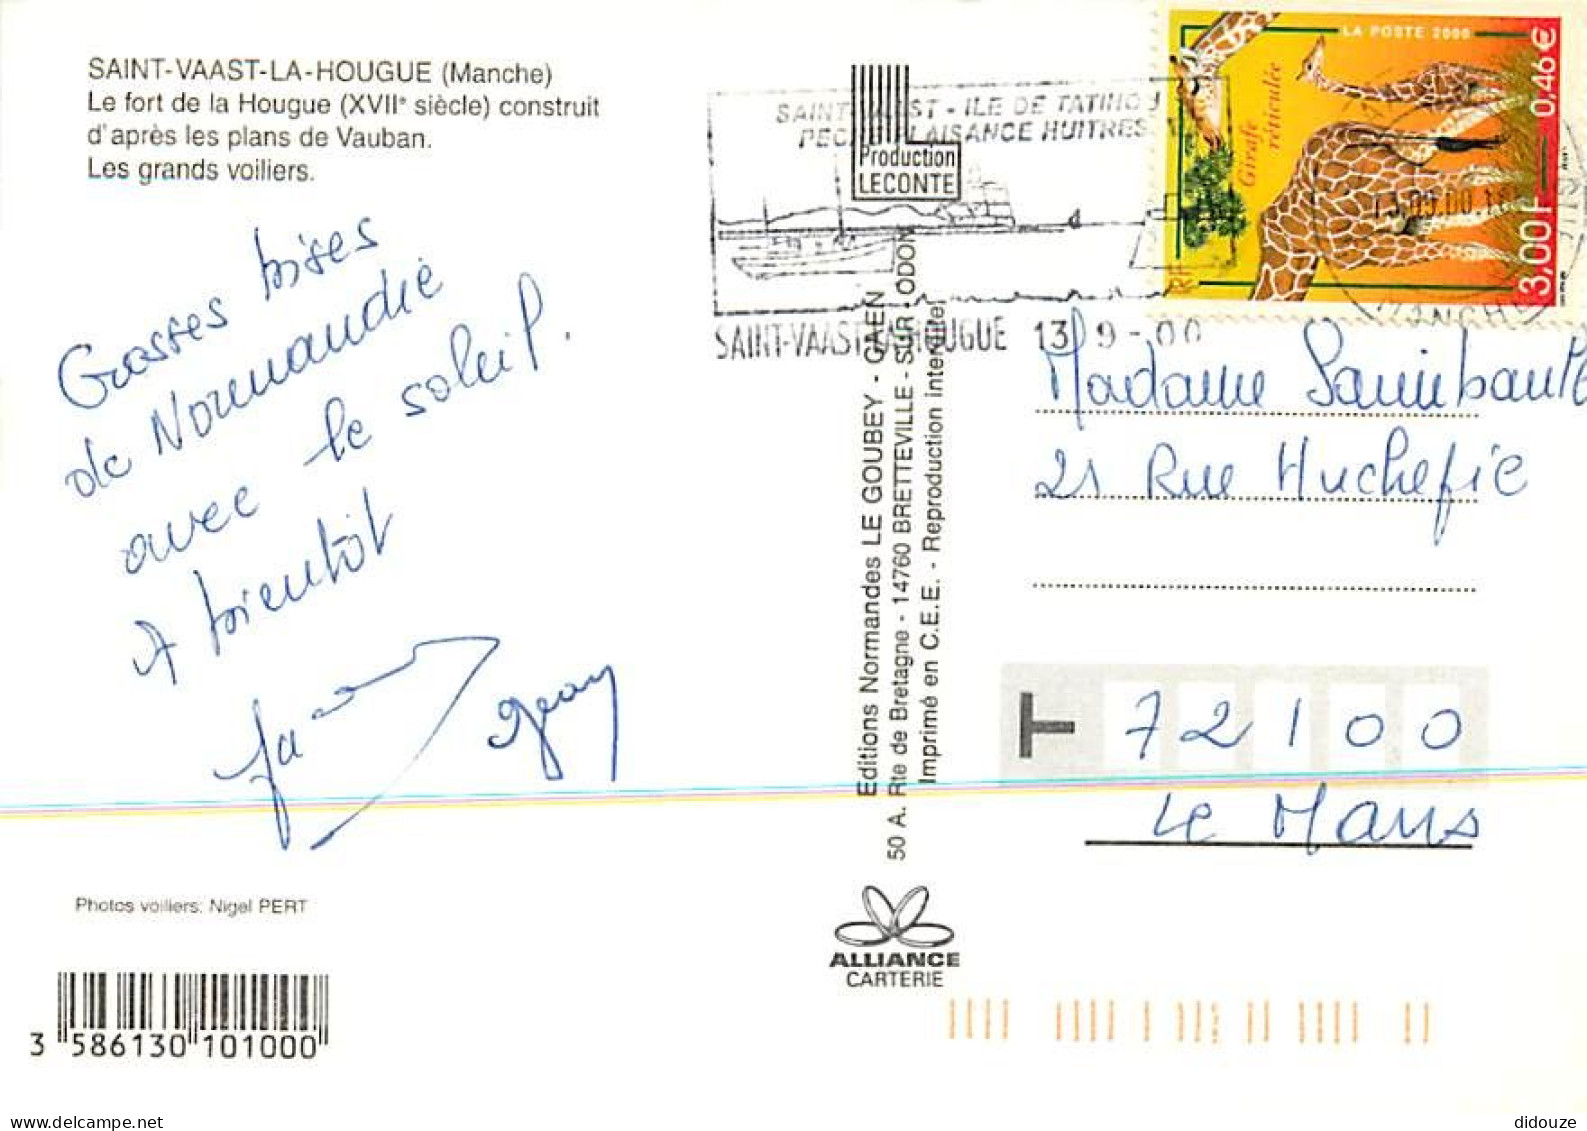 SAINT-VAAST-LA-HOUGUE (Manche)
Le fort de la Hougue (XVIIe siècle) construit
d'après les plans de Vauban.
Les grands voiliers.
Grosses bises
de Normandie
avec le soleil.
A bientôt
Photos voiliers: Nigel PERT
3 586130 101000
Production
LECONTE
Editions Normandes LE GOUBEY - CAEN
50 A. Rte de Bretagne - 14760 BRETTEVILLE - SUR - ODON
Imprimé en C.E.E. - Reproduction interdite
ALLIANCE
CARTERIE
SAINT-VAAST - ILE DE TATIHOU
PECHE PLAISANCE HUITRES
SAINT-VAAST-LA-HOUGUE 13-9-00
LA POSTE 2000
Girafe
réticulée
0,46 €
3,00 F
RF
MANCHE
Madame
21 Rue Huchepie
T 72100
Le Mans
didouze